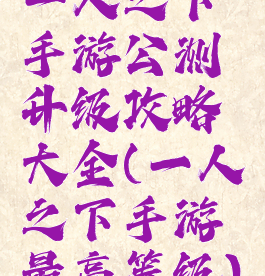 一人之下
手游公测
升级攻略
大全(一人
之下手游
最高等级)